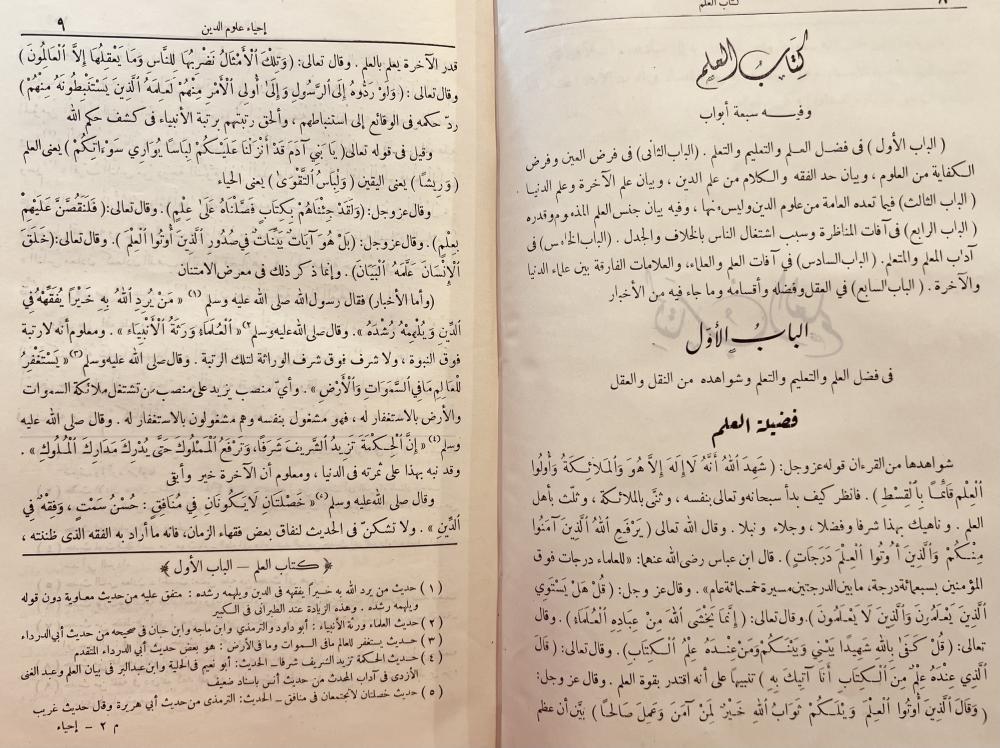 ٨
كتاب العلم
كتاب العلم
وفيه سبعة أبواب
( الباب الأول ) فى فضل العلم والتعليم والتعلم . (الباب الثانى) فى فرض العين وفرض
الكفاية من العلوم ، وبيان حد الفقه والكلام من علم الدين ، وبيان علم الآخرة وعلم الدنيا .
( الباب الثالث) فيما تعده العامة من علوم الدين وليس منها ، وفيه بيان جنس العلم المذموم وقدره
( الباب الرابع ) فى آفات المناظرة وسبب اشتغال الناس بالخلاف والجدل . (الباب الخامس) فى
آداب المعلم والمتعلم. (الباب السادس) فى آفات العلم والعلماء، والعلامات الفارقة بين علماء الدنيا
والآخرة . ( الباب السابع) في العقل وفضله وأقسامه وما جاء فيه من الأخبار
الباب الأول
فى فضل العلم والتعليم والتعلم وشواهده من النقل والعقل
فضيلة العلم
شواهدها من القرءان قوله عز وجل: ( شَهِدَ اللهُ أَنَّهُ لَا إِلَهَ إِلَّا هُوَ وَالْمَلَائِكَةُ وَأُولُوا
الْعِلْمِ قَائِمًا بِالْقِسْطِ ) . فانظر كيف بدأ سبحانه وتعالى بنفسه ، وثنَّى بالملائكة ، وثلّث بأهل
العلم . وناهيك بهذا شرفا وفضلا ، وجلاء ونبلا . وقال الله تعالى ( يَرْفَعِ اللهُ الَّذِينَ آمَنُوا
مِنْكُمْ وَالَّذِينَ أُوتُوا الْعِلْمَ دَرَجَاتٍ) . قال ابن عباس رضى الله عنهما: «للعلماء درجات فوق
المؤمنين بسبعمائة درجة، ما بين الدرجتين مسيرة خمسمائة عام» . وقال عز وجل: ( قُلْ هَلْ يَسْتَوِي
الَّذِينَ يَعْلَمُونَ وَالَّذِينَ لَا يَعْلَمُونَ). وقال تعالى: ( إِنَّمَا يَخْشَى اللهَ مِنْ عِبَادِهِ الْعُلَمَاءُ) . وقال
تعالى: ( قُلْ كَفَى بِاللهِ شَهِيدًا بَيْنِي وَبَيْنَكُمْ وَمَنْ عِنْدَهُ عِلْمُ الْكِتَابِ) . وقال تعالى: ( قَالَ
الَّذِي عِنْدَهُ عِلْمٌ مِنَ الْكِتَابِ أَنَا آتِيكَ بِهِ ) تنبيها على أنه اقتدر بقوة العلم . وقال عز وجل:
( وَقَالَ الَّذِينَ أُوتُوا الْعِلْمَ وَيْلَكُمْ ثَوَابُ اللهِ خَيْرٌ لِمَنْ آمَنَ وَعَمِلَ صَالِحًا ) بيَّن أن عظم
إحياء علوم الدين
٩
قدر الآخرة يعلم بالعلم . وقال تعالى: ( وَتِلْكَ الْأَمْثَالُ نَضْرِبُهَا لِلنَّاسِ وَمَا يَعْقِلُهَا إِلَّا الْعَالِمُونَ )
وقال تعالى : ( وَلَوْ رَدُّوهُ إِلَى الرَّسُولِ وَإِلَى أُولِى الْأَمْرِ مِنْهُمْ لَعَلِمَهُ الَّذِينَ يَسْتَنْبِطُونَهُ مِنْهُمْ )
ردّ حكمه فى الوقائع إلى استنباطهم ، وألحق رتبتهم برتبة الأنبياء فى كشف حكم الله
وقيل فى قوله تعالى ( يَا بَنِي آدَمَ قَدْ أَنْزَلْنَا عَلَيْكُمْ لِبَاسًا يُوَارِي سَوْءَاتِكُمْ ) يعنى العلم
( وَرِيشًا ) يعنى اليقين ( وَلِبَاسُ التَّقْوَى ) يعنى الحياء
وقال عز وجل: ( وَلَقَدْ جِئْنَاهُمْ بِكِتَابٍ فَصَّلْنَاهُ عَلَى عِلْمٍ ) . وقال تعالى: ( فَلَنَقُصَّنَّ عَلَيْهِمْ
بِعِلْمٍ) . وقال عز وجل: (بَلْ هُوَ آيَاتٌ بَيِّنَاتٌ فِي صُدُورِ الَّذِينَ أُوتُوا الْعِلْمَ ) . وقال تعالى: (خَلَقَ
الْإِنْسَانَ عَلَّمَهُ الْبَيَانَ) . وإنما ذكر ذلك فى معرض الامتنان
(وأما الأخبار) فقال رسول الله صلى الله عليه وسلم (١) « مَنْ يُرِدِ اللهُ بِهِ خَيْرًا يُفَقِّهْهُ فِي
الدِّينِ وَيُلْهِمْهُ رُشْدَهُ » . وقال صلى الله عليه وسلم (٢) « الْعُلَمَاءُ وَرَثَةُ الْأَنْبِيَاءِ » . ومعلوم أنه لا رتبة
فوق النبوة ، ولا شرف فوق شرف الوراثة لتلك الرتبة . وقال صلى الله عليه وسلم (٣) « يَسْتَغْفِرُ
لِلْعَالِمِ مَا فِي السَّمَوَاتِ وَالْأَرْضِ » . وأيّ منصب يزيد على منصب من تشتغل ملائكة السموات
والأرض بالاستغفار له ، فهو مشغول بنفسه وهم مشغولون بالاستغفار له . وقال صلى الله عليه
وسلم (٤) « إِنَّ الْحِكْمَةَ تَزِيدُ الشَّرِيفَ شَرَفًا، وَتَرْفَعُ الْمَمْلُوكَ حَتَّى يُدْرِكَ مَدَارِكَ الْمُلُوكِ » .
وقد نبه بهذا على ثمرته فى الدنيا ، ومعلوم أن الآخرة خير وأبقى
وقال صلى الله عليه وسلم (٥) « خَصْلَتَانِ لَا يَكُونَانِ فِي مُنَافِقٍ : حُسْنُ سَمْتٍ ، وَفِقْهٌ فِي
الدِّينِ » . ولا تشكنّ فى الحديث لنفاق بعض فقهاء الزمان، فانه ما أراد به الفقه الذى ظننته ،
﴿ كتاب العلم — الباب الأول ﴾
( ١ ) حديث من يرد الله به خيراً يفقهه فى الدين ويلهمه رشده : متفق عليه من حديث معاوية دون قوله
ويلهمه رشده . وهذه الزيادة عند الطبرانى فى الكبير
( ٢ ) حديث العلماء ورثة الأنبياء : أبو داود والترمذي وابن ماجه وابن حبان فى صحيحه من حديث أبي الدرداء
( ٣ ) حديث يستغفر للعالم مافى السموات وما فى الأرض : هو بعض حديث أبي الدرداء المتقدم
( ٤ ) حديث الحكمة تزيد الشريف شرفا — الحديث: أبو نعيم فى الحلية وابن عبد البر فى بيان العلم وعبد الغنى
الأزدى فى آداب المحدث من حديث أنس باسناد ضعيف
( ٥ ) حديث خصلتان لا تجتمعان فى منافق — الحديث: الترمذى من حديث أبى هريرة وقال حديث غريب
م ٢ - إحياء